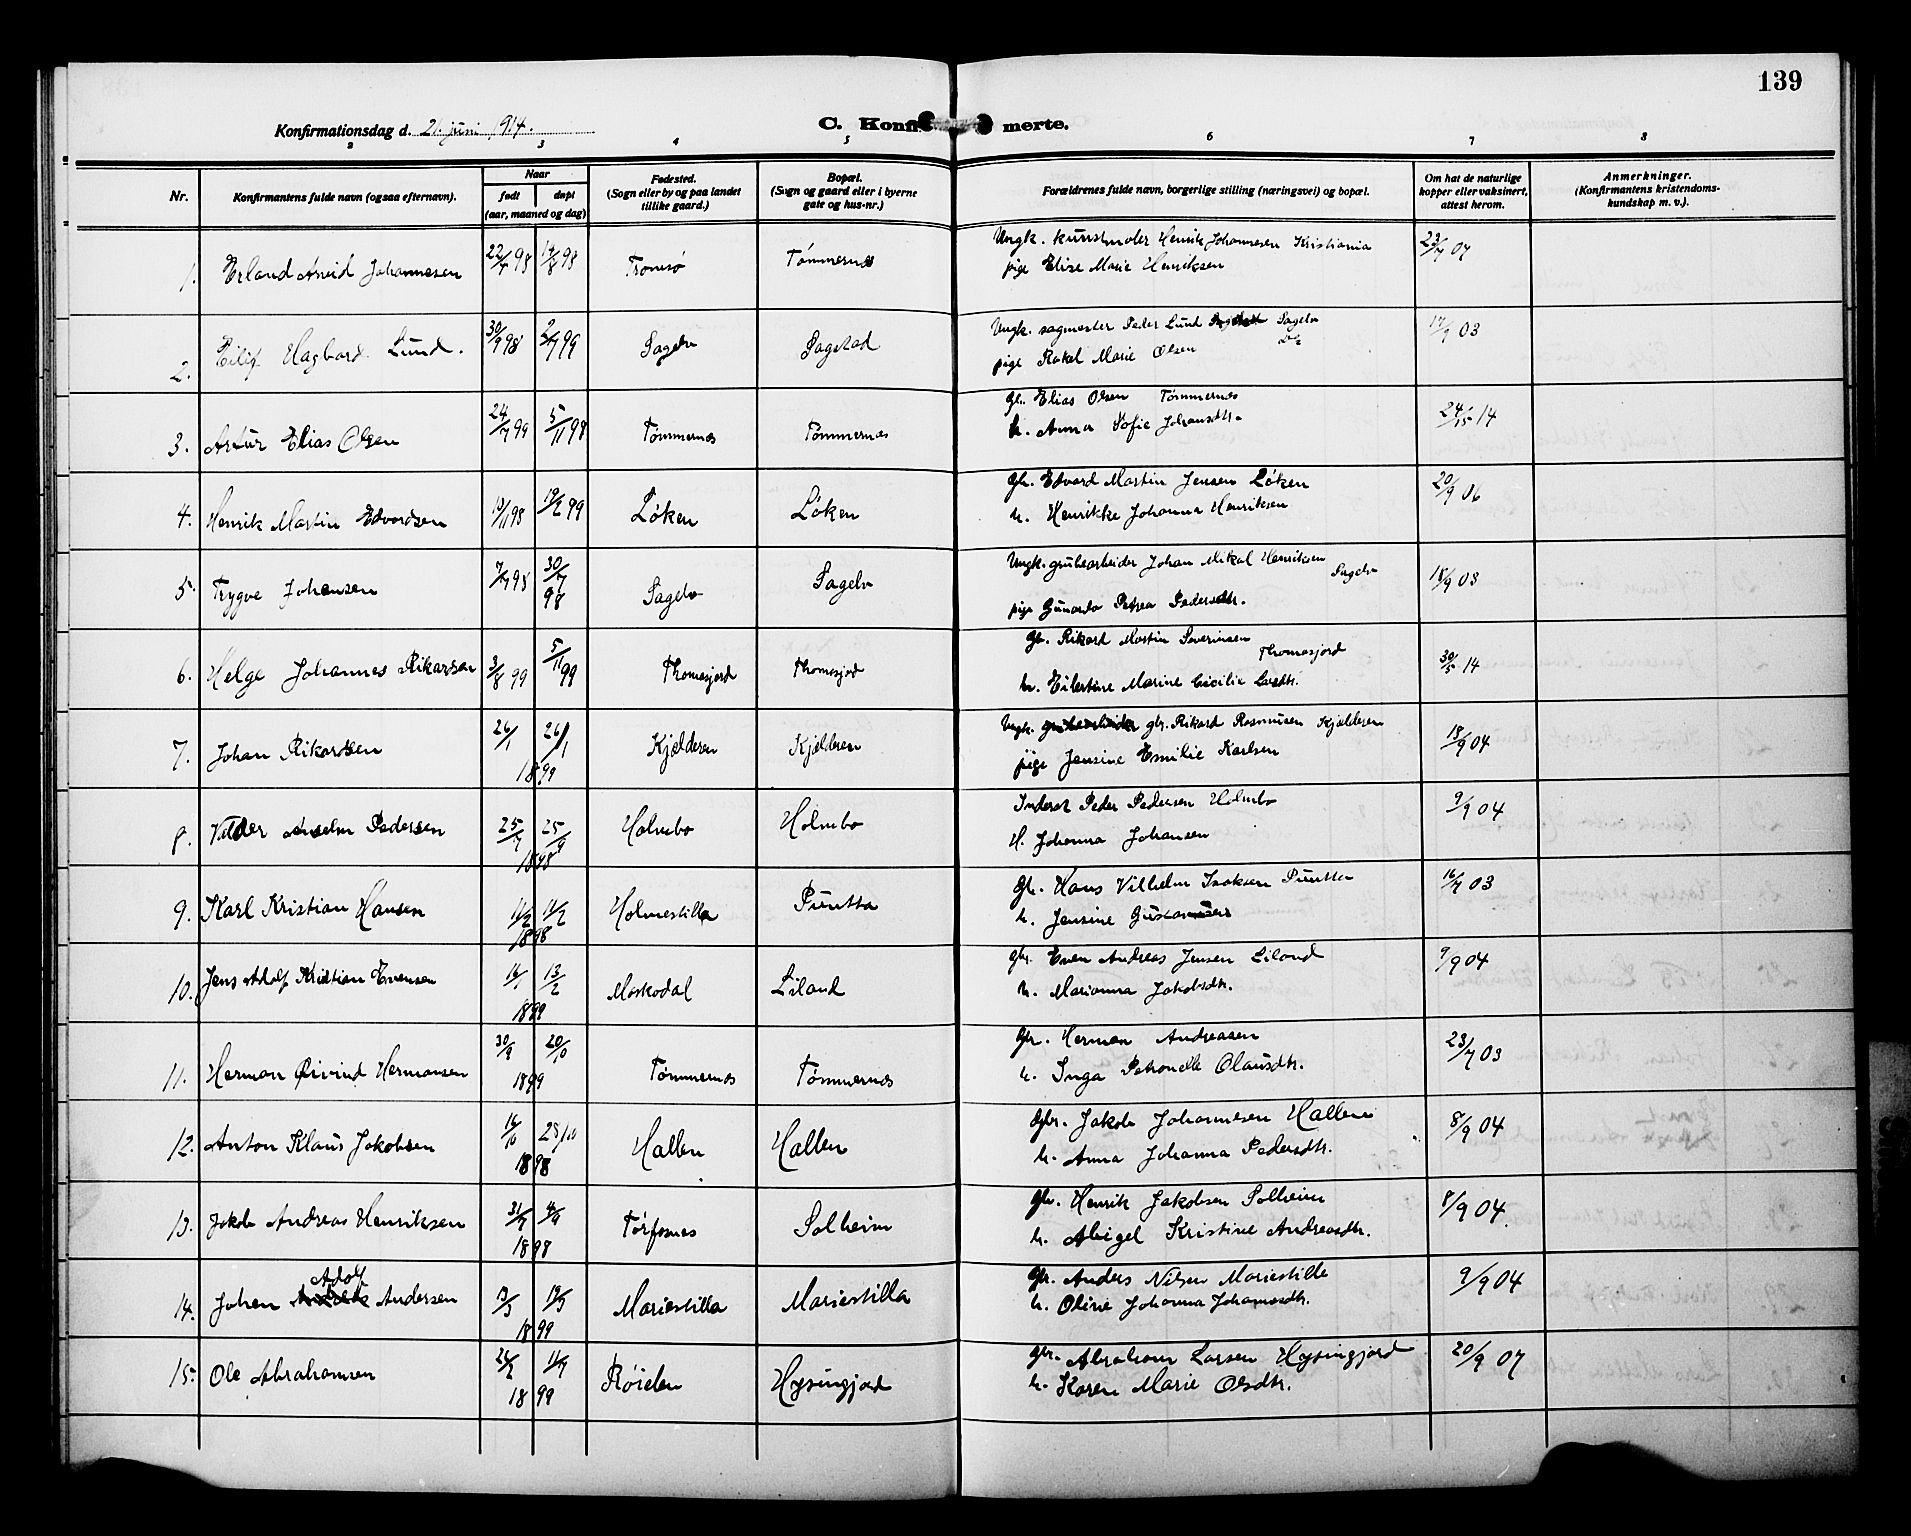 139
Konfirmationsdag d. 21. juni 1914.
C. Konfirmerte.
2 3 4 5 6 7 8
Nr. Konfirmantens fulde navn (ogsaa efternavn). Naar født døpt (aar, maaned og dag) Fødested. (Sogn eller by og paa landet tillike gaard.) Bopæl. (Sogn og gaard eller i byerne gate og hus-nr.) Forældrenes fulde navn, borgerlige stilling (næringsvei) og bopæl. Om hat de naturlige kopper eller vaksinert, attest herom. Anmerkninger. (Konfirmantens kristendoms-kundskap m. v.).
1. Erland Arvid Johannesen 22/7 98 14/8 98 Tromsø Tømmernes Ungk. kunstmaler Henrik Johannesen Kristiania 23/7 07
pige Elise Marie Henriksen
2. Eilif Hagbard Lund. 30/9 98 2/7 99 Sagelv Sagstad Ungk. sagmester Peder Lund Sagelv 17/9 03
pige Rakel Marie Olsen
3. Artur Elias Olsen 24/7 99 5/11 98 Tømmernes Tømmernes Gb. Elias Olsen Tømmernes 24/5 14
h. Anna Sofie Johansdtr.
4. Henrik Martin Edvardsen 10/11 98 19/2 99 Løken Løken Gb. Edvard Martin Jensen Løken 20/9 06
h. Henrikke Johanna Henriksen
5. Trygve Johansen 7/7 98 30/7 98 Sagelv Sagelv Ungk. grubearbeider Johan Mikal Henriksen Sagelv 18/9 03
pige Gunarda Petrea Pedersdtr.
6. Helge Johannes Rikardsen 3/8 99 5/11 99 Thomasjord Thomasjord Gb. Rikard Martin Severinsen Thomasjord 30/5 14
h. Eilertine Marine Cecilie Larsdtr.
7. Johan Rikardsen 26/1 26/1 1899 Kjælderen Kjælderen Ungk. gbr. Rikard Rasmusen Kjælderen 18/9 04
pige Jensine Emilie Karlsen
8. Vidder Anselm Pedersen 25/7 25/9 1898 Holmbo Holmbo Inderst Peder Pedersen Holmbo 9/9 04
H. Johanna Johansen
9. Karl Kristian Hansen 11/2 11/2 1898 Holmestilla Puntta Gb. Hans Vilhelm Isaksen Puntta 16/7 03
h. Jensine Gustavsens
10. Jens Adolf Kristian Evensen 16/1 13/2 1899 Moskodal Liland Gbr. Even Andreas Jensen Liland 9/9 04
h. Marianna Jakobsdtr.
11. Herman Øivind Hermansen 30/9 20/10 1899 Tømmernes Tømmernes Gbr. Herman Andreasen 23/7 03
h. Inga Petronelle Olausdtr.
12. Anton Klaus Jakobsen 16/10 28/10 1898 Hallen Hallen Gbr. Jakob Johannesen Hallen 8/9 04
h. Anna Johanna Pedersdtr.
13. Jakob Andreas Henriksen 31/7 4/9 1898 Tørfosnes Solheim Gbr. Henrik Jakobsen Solheim 8/9 04.
h. Abigel Kristine Andreasdtr.
14. Johan Adolf Andersen 13/3 19/3 1899 Mariestilla Mariestilla Gbr. Anders Nilsen Mariestille 9/9 04
h. Oline Johanna Johannesdtr.
15. Ole Abrahamsen 26/2 11/9 1899 Røielen Hysingjord Gbr. Abraham Larsen Hysingjord 20/9 07
h. Karen Marie Olsdtr.